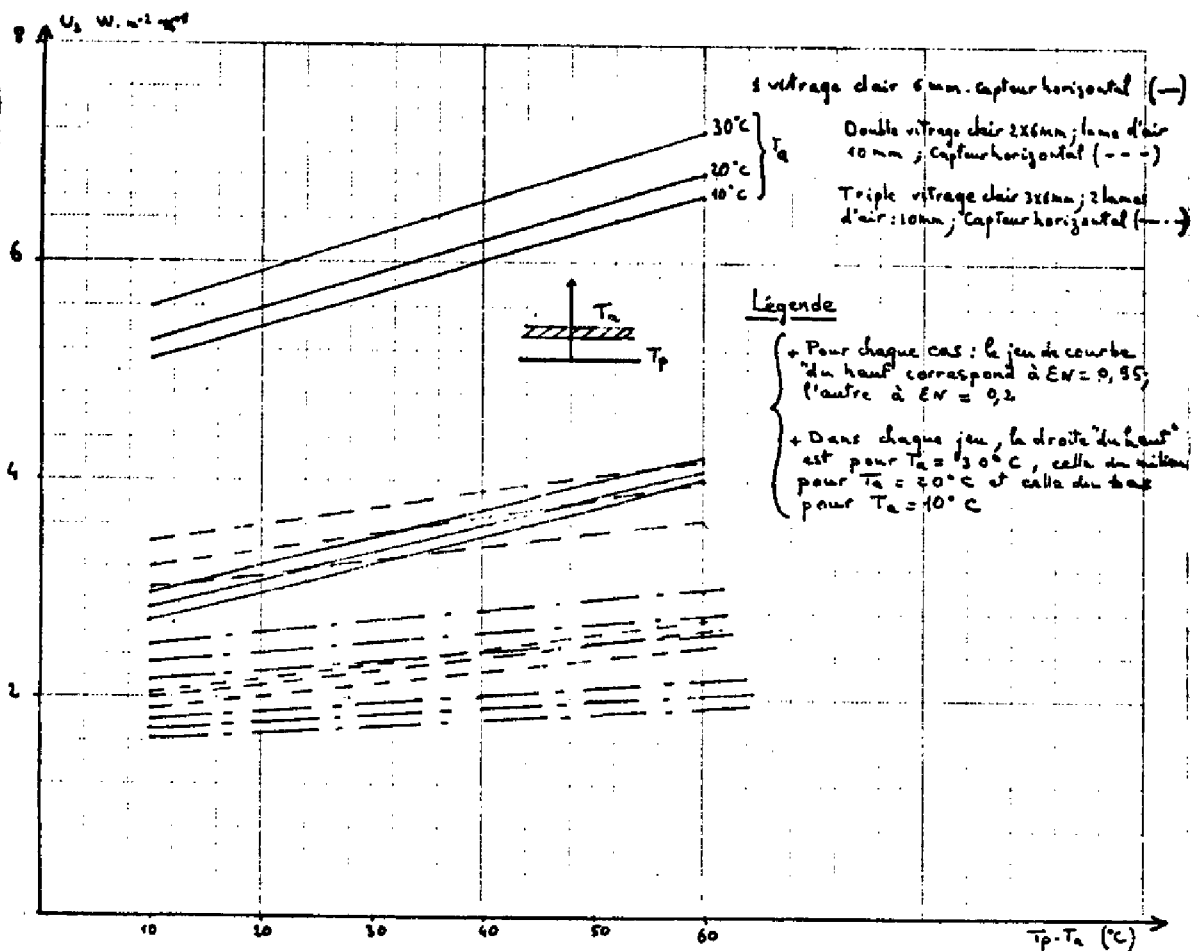 U₁ W.m⁻²
8
6
4
2
10
20
30
40
50
60
Tp-Ta (°C)
30°C
20°C
10°C
Ta
1 vitrage clair 6mm. Capteur horizontal (—)
Double vitrage clair 2X6mm; lame d'air
10 mm ; Capteur horizontal (---)
Triple vitrage clair 3x6mm; 2 lames
d'air : 10mm; Capteur horizontal (—·—)
Ta
Tp
Légende
+ Pour chaque cas : le jeu de courbe
"du haut correspond à EN = 0,95;
l'autre à EN = 0,2
+ Dans chaque jeu, la droite "du haut"
est pour Ta = 30°C, celle du milieu
pour Ta = 20°C et celle du bas
pour Ta = 10°C